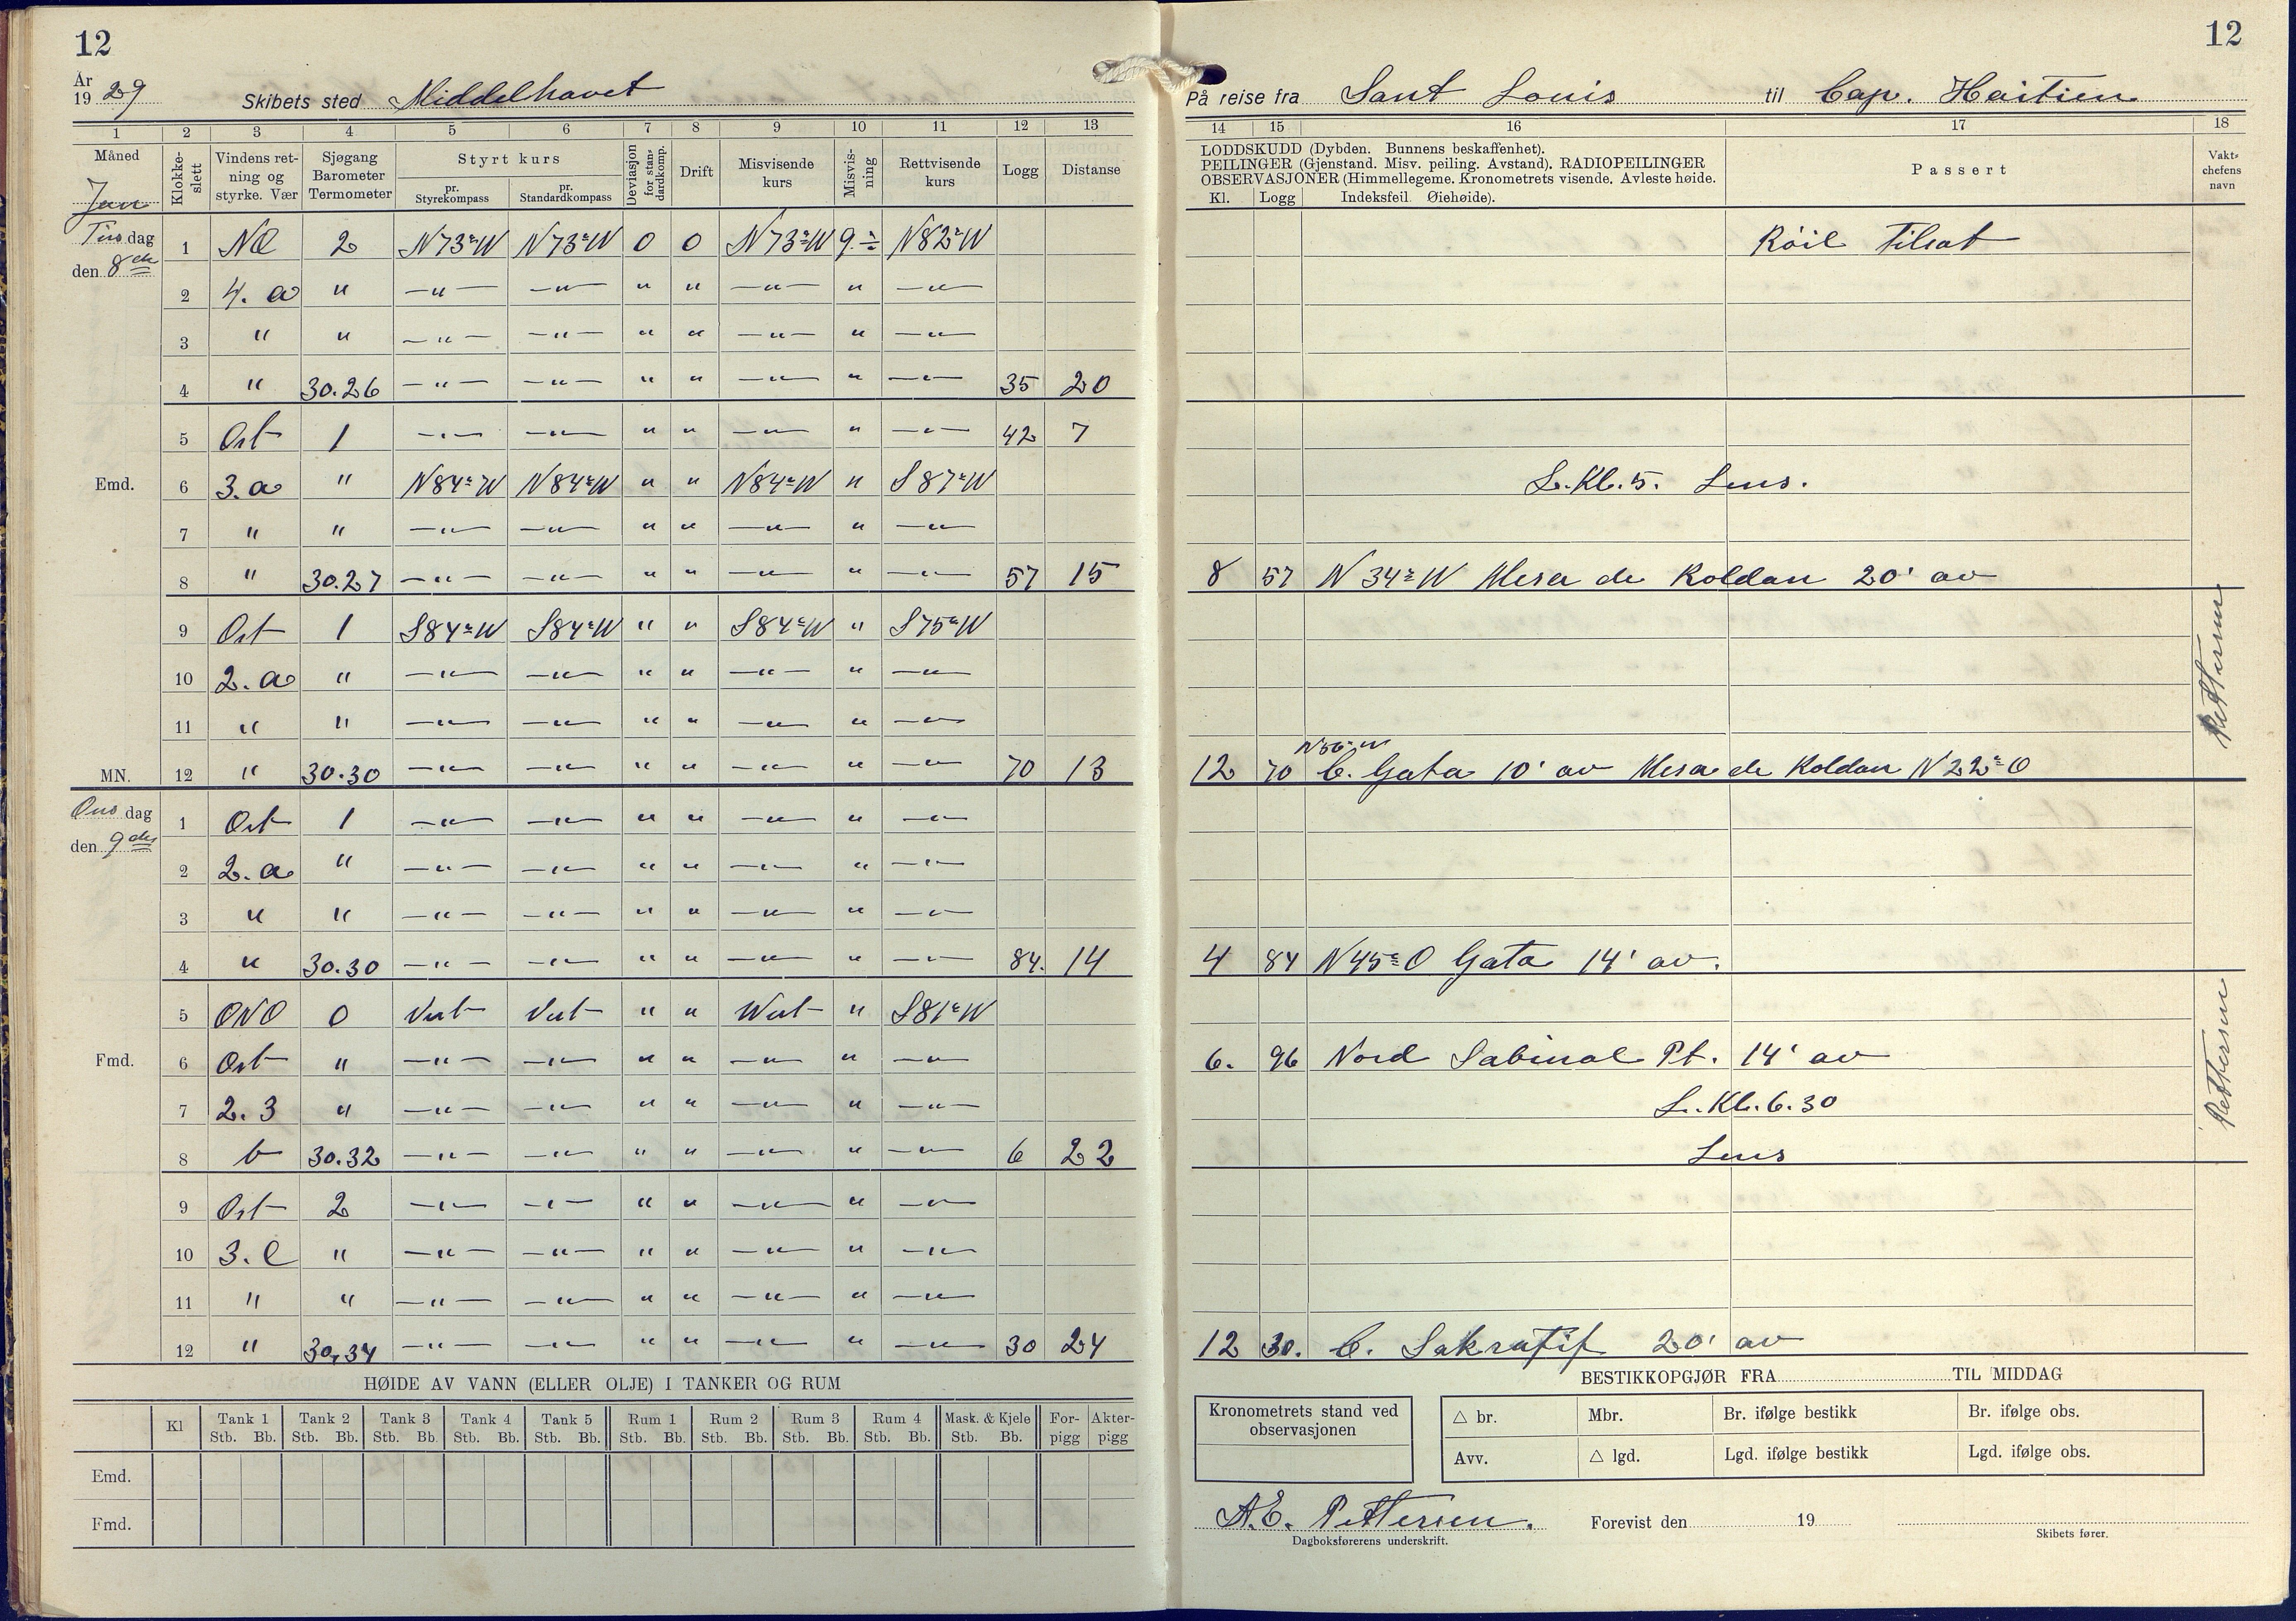 12
12
År 1929 Skibets sted Middelhavet
På reise fra Sant Louis til Cap. Haitien
1 2 3 4 5 6 7 8 9 10 11 12 13
14 15 16 17 18
Måned Jan
Klokkeslett
Vindens retning og styrke. Vær
Sjøgang Barometer Termometer
Styrt kurs
pr. Styrekompass
pr. Standardkompass
Deviasjon for standardkomp.
Drift
Misvisende kurs
Misvisning
Rettvisende kurs
Logg
Distanse
LODDSKUDD (Dybden. Bunnens beskaffenhet).
PEILINGER (Gjenstand. Misv. peiling. Avstand). RADIOPEILINGER
OBSERVASJONER (Himmellegeme. Kronometrets visende. Avleste høide.
Kl. Logg Indeksfeil. Øiehøide).
Passert
Vaktchefens navn
Tirsdag den 8de
1 NO 2 N73°W N73°W 0 0 N73°W 9÷ N82°W
2 4. a " —"— —"— " " —"— " —"—
3 " " —"— —"— " " —"— " —"—
4 " 30.26 —"— —"— " " —"— " —"— 35 20
5 Ost 1 —"— —"— " " —"— " —"— 42 7
Emd. 6 3. a " N84°W N84°W " " N84°W " S87°W
L. Kl. 5. Lens.
7 " " —"— —"— " " —"— " —"—
8 " 30.27 —"— —"— " " —"— " —"— 57 15
8 57 N34°W Mesa de Koldan 20' av
9 Ost 1 S84°W S84°W " " S84°W " S75°W
10 2. a " —"— —"— " " —"— " —"—
11 " " —"— —"— " " —"— " —"—
Pettersen
MN. 12 " 30.30 —"— —"— " " —"— " —"— 70 13
N56°W
12 70 C. Gata 10' av Mesa de Koldan N22°O
Onsdag den 9de
1 Ost 1 —"— —"— " " —"— " —"—
2 2. a " —"— —"— " " —"— " —"—
3 " " —"— —"— " " —"— " —"—
4 " 30.30 —"— —"— " " —"— " —"— 84. 14
4 84 N45°O Gata 14' av.
5 ONO 0 Vest Vest " " West " S81°W
Fmd. 6 Ost " —"— —"— " " —"— " —"—
6. 96 Nord Sabinal Pt. 14' av
7 2.3 " —"— —"— " " —"— " —"—
L. Kl. 6.30
Pettersen
8 b 30.32 —"— —"— " " —"— " —"— 6 22
Lens
9 Ost 2 —"— —"— " " —"— " —"—
10 3. C " —"— —"— " " —"— " —"—
11 " " —"— —"— " " —"— " —"—
12 " 30,34 —"— —"— " " —"— " —"— 30 24
12 30. C. Sakratif 20' av
HØIDE AV VANN (ELLER OLJE) I TANKER OG RUM
Kl Tank 1 Tank 2 Tank 3 Tank 4 Tank 5 Rum 1 Rum 2 Rum 3 Rum 4 Mask. & Kjele Forpigg Akterpigg
Stb. Bb. Stb. Bb. Stb. Bb. Stb. Bb. Stb. Bb. Stb. Bb. Stb. Bb. Stb. Bb. Stb. Bb. Stb. Bb.
Emd.
Fmd.
BESTIKKOPGJØR FRA TIL MIDDAG
Kronometrets stand ved observasjonen
△ br. Mbr. Br. ifølge bestikk Br. ifølge obs.
Avv. △ lgd. Lgd. ifølge bestikk Lgd. ifølge obs.
A.E. Pettersen.
Dagboksførerens underskrift.
Forevist den 19
Skibets fører.